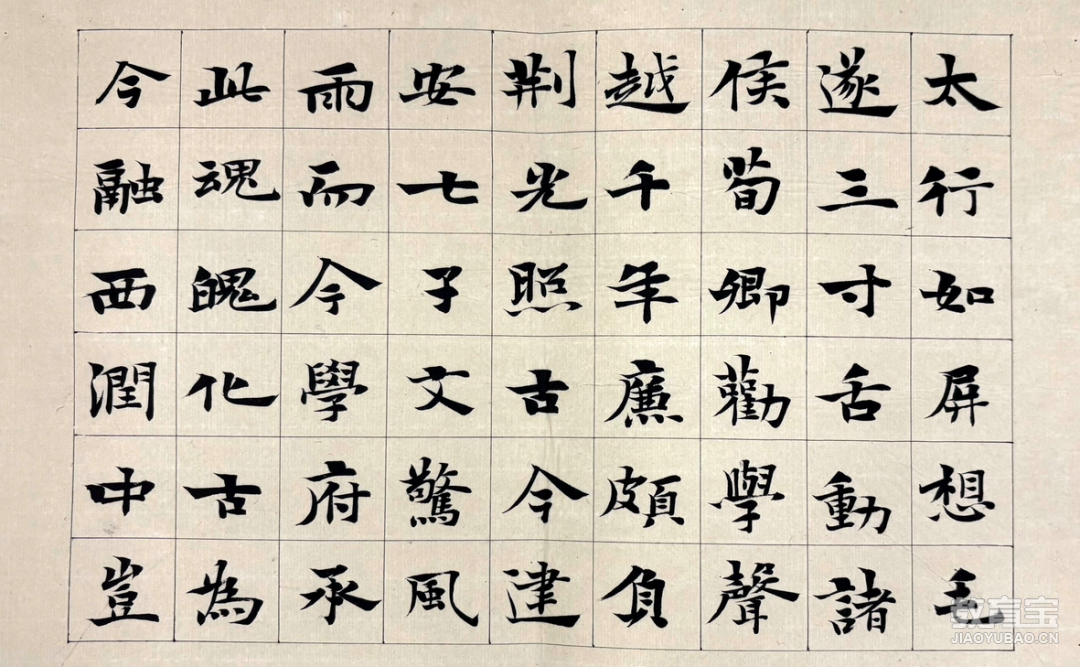 太行如屏想毛
遂三寸舌動諸
侯荀卿勸學聲
越千年廉頗負
荆光照古今建
安七子文驚風
雨而今學府承
此魂魄化古為
今融西潤中豈
教育宝
JIAOYUBAO.CN